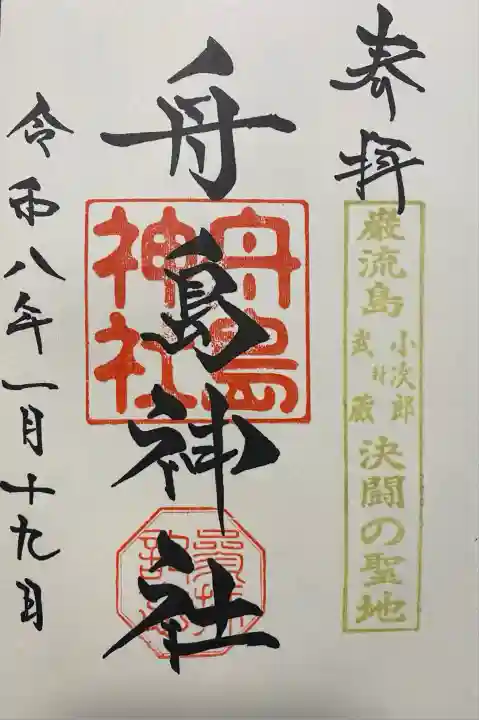 奉拝
巌流島 小次郎 武蔵 決闘の聖地
舟島神社
舟島
神社
参拝
記念
令和八年一月十九日